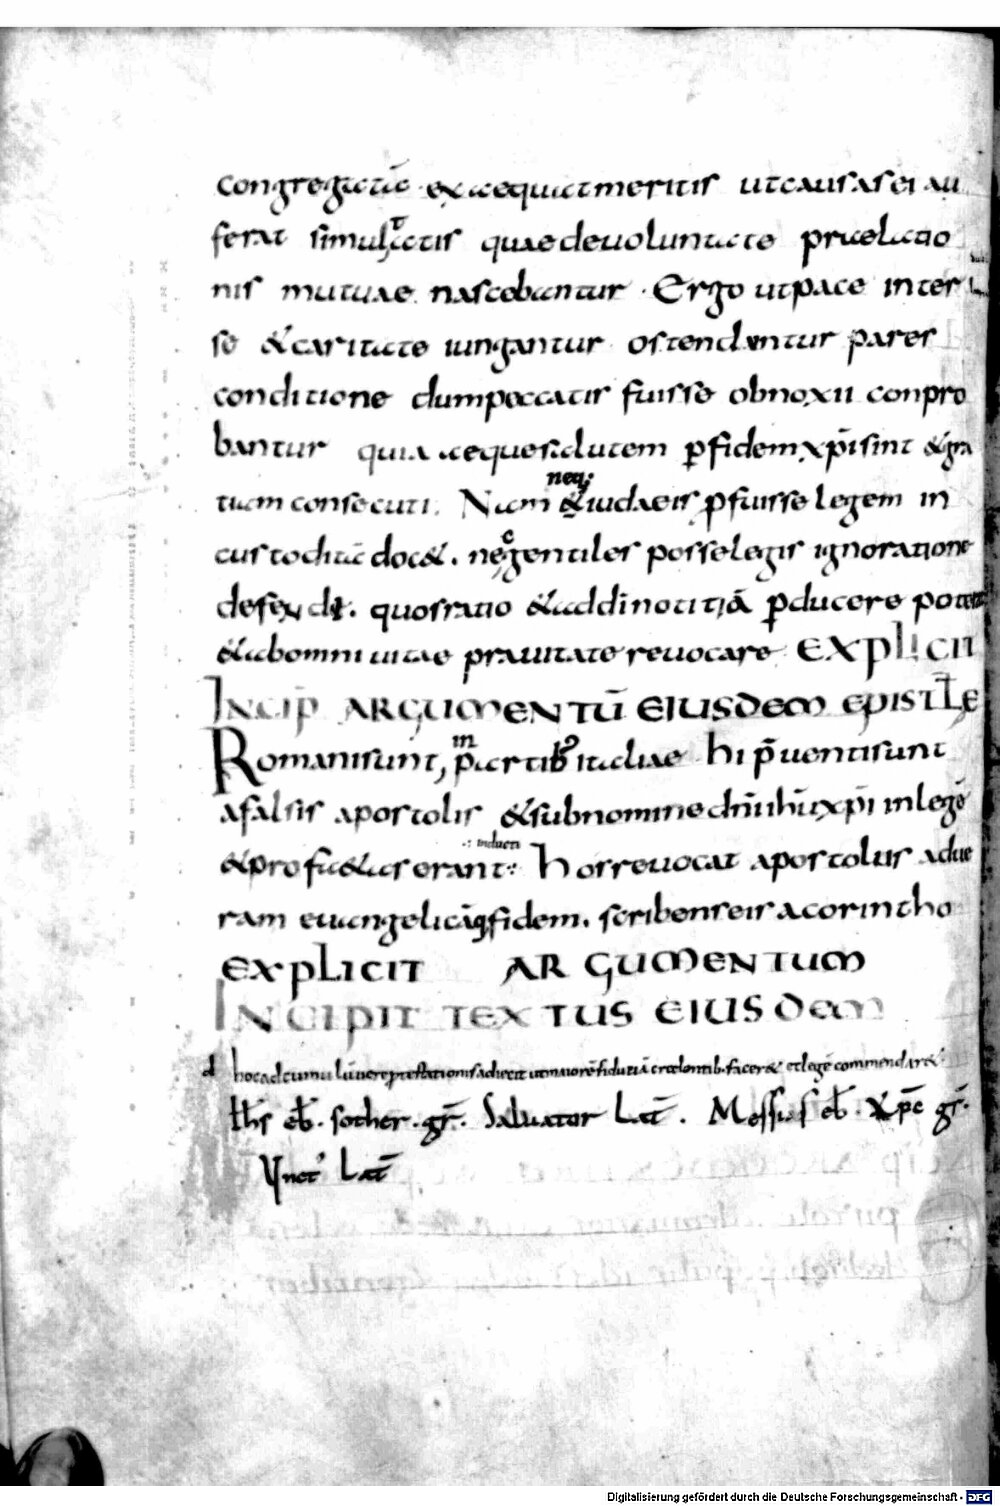 congregatiõe exaequat meritis ut causas ei au
ferat simultatis quae de voluntate praelatio
nis mutuae nascebantur. Ergo ut pace inter
se & caritate iungantur ostenduntur pares
conditione dum peccatis fuisse obnoxii conpro
bantur quia aeque salutem p̱ fidem xp̄i sint & gra
tiam consecuti. Nam neq; & iudaeis p̱fuisse legem in
custoditā doc&. nec gentiles posse legis ignoratione
defendi. quos ratio & ad dī notitiā p̱ducere poterat
& ab omni vitae pravitate revocare EXPLICIT
INCIP̄ ARGUMENTŪ EIUSDEM EPISTLE
Romani sunt, in p̱artib; italiae hi p̄venti sunt
a falsis apostolis & sub nomine dn̄i ihū xp̄i in legē
& profaetas erant inducti hos revocat apostolus ad ve
ram evangelicāq; fidem. scribens eis a corintho
EXPLICIT ARGUMENTUM
INCIPIT TEXTUS EIUSDEM
d hoc ad cumulū verae praestationis adiecit ut maiorē fidutiā credentib. facer& et legē commendar&
Ih̄s eb̄. sother. gr̄. Salvator Lat̄. Messias eb̄. Xp̄c gr̄.
Unct' Lat̄
Digitalisierung gefördert durch die Deutsche Forschungsgemeinschaft - DFG